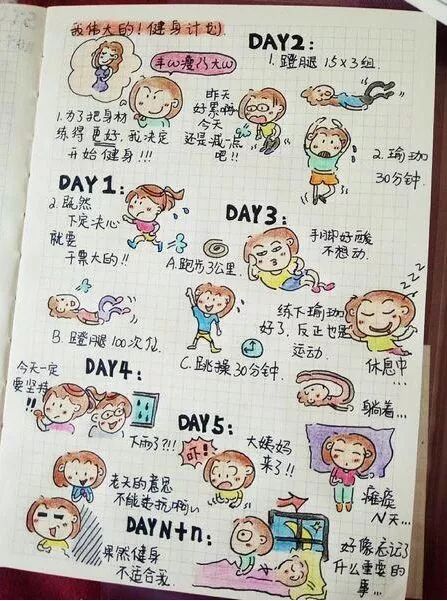 我伟大的！健身计划
半ω瘦了大ω
1.为了把身材
练得更好,我决定
开始健身!!!
DAY1:
2.既然
下定决心
就要
干票大的!!
A.跑步3公里.
B.蹬腿100次/位
C.跳操30分钟.
DAY2:
1.蹬腿 15×3组.
昨天
好累啊
今天
还是减点
吧!!
2.瑜珈
30分钟.
DAY3:
手脚好酸
不想动.
练下瑜珈
好了.反正也是
运动.
zzz
休息中...
躺着...
DAY4:
今天一定
要坚持!!
下雨了?!!
老天的意思
不能违抗啊
果然健身
不适合我.
DAY5:
吓!
大姨妈
来了!!
瘫痪
N天...
DAYN+n:
好像忘记了
什么重要的
事...